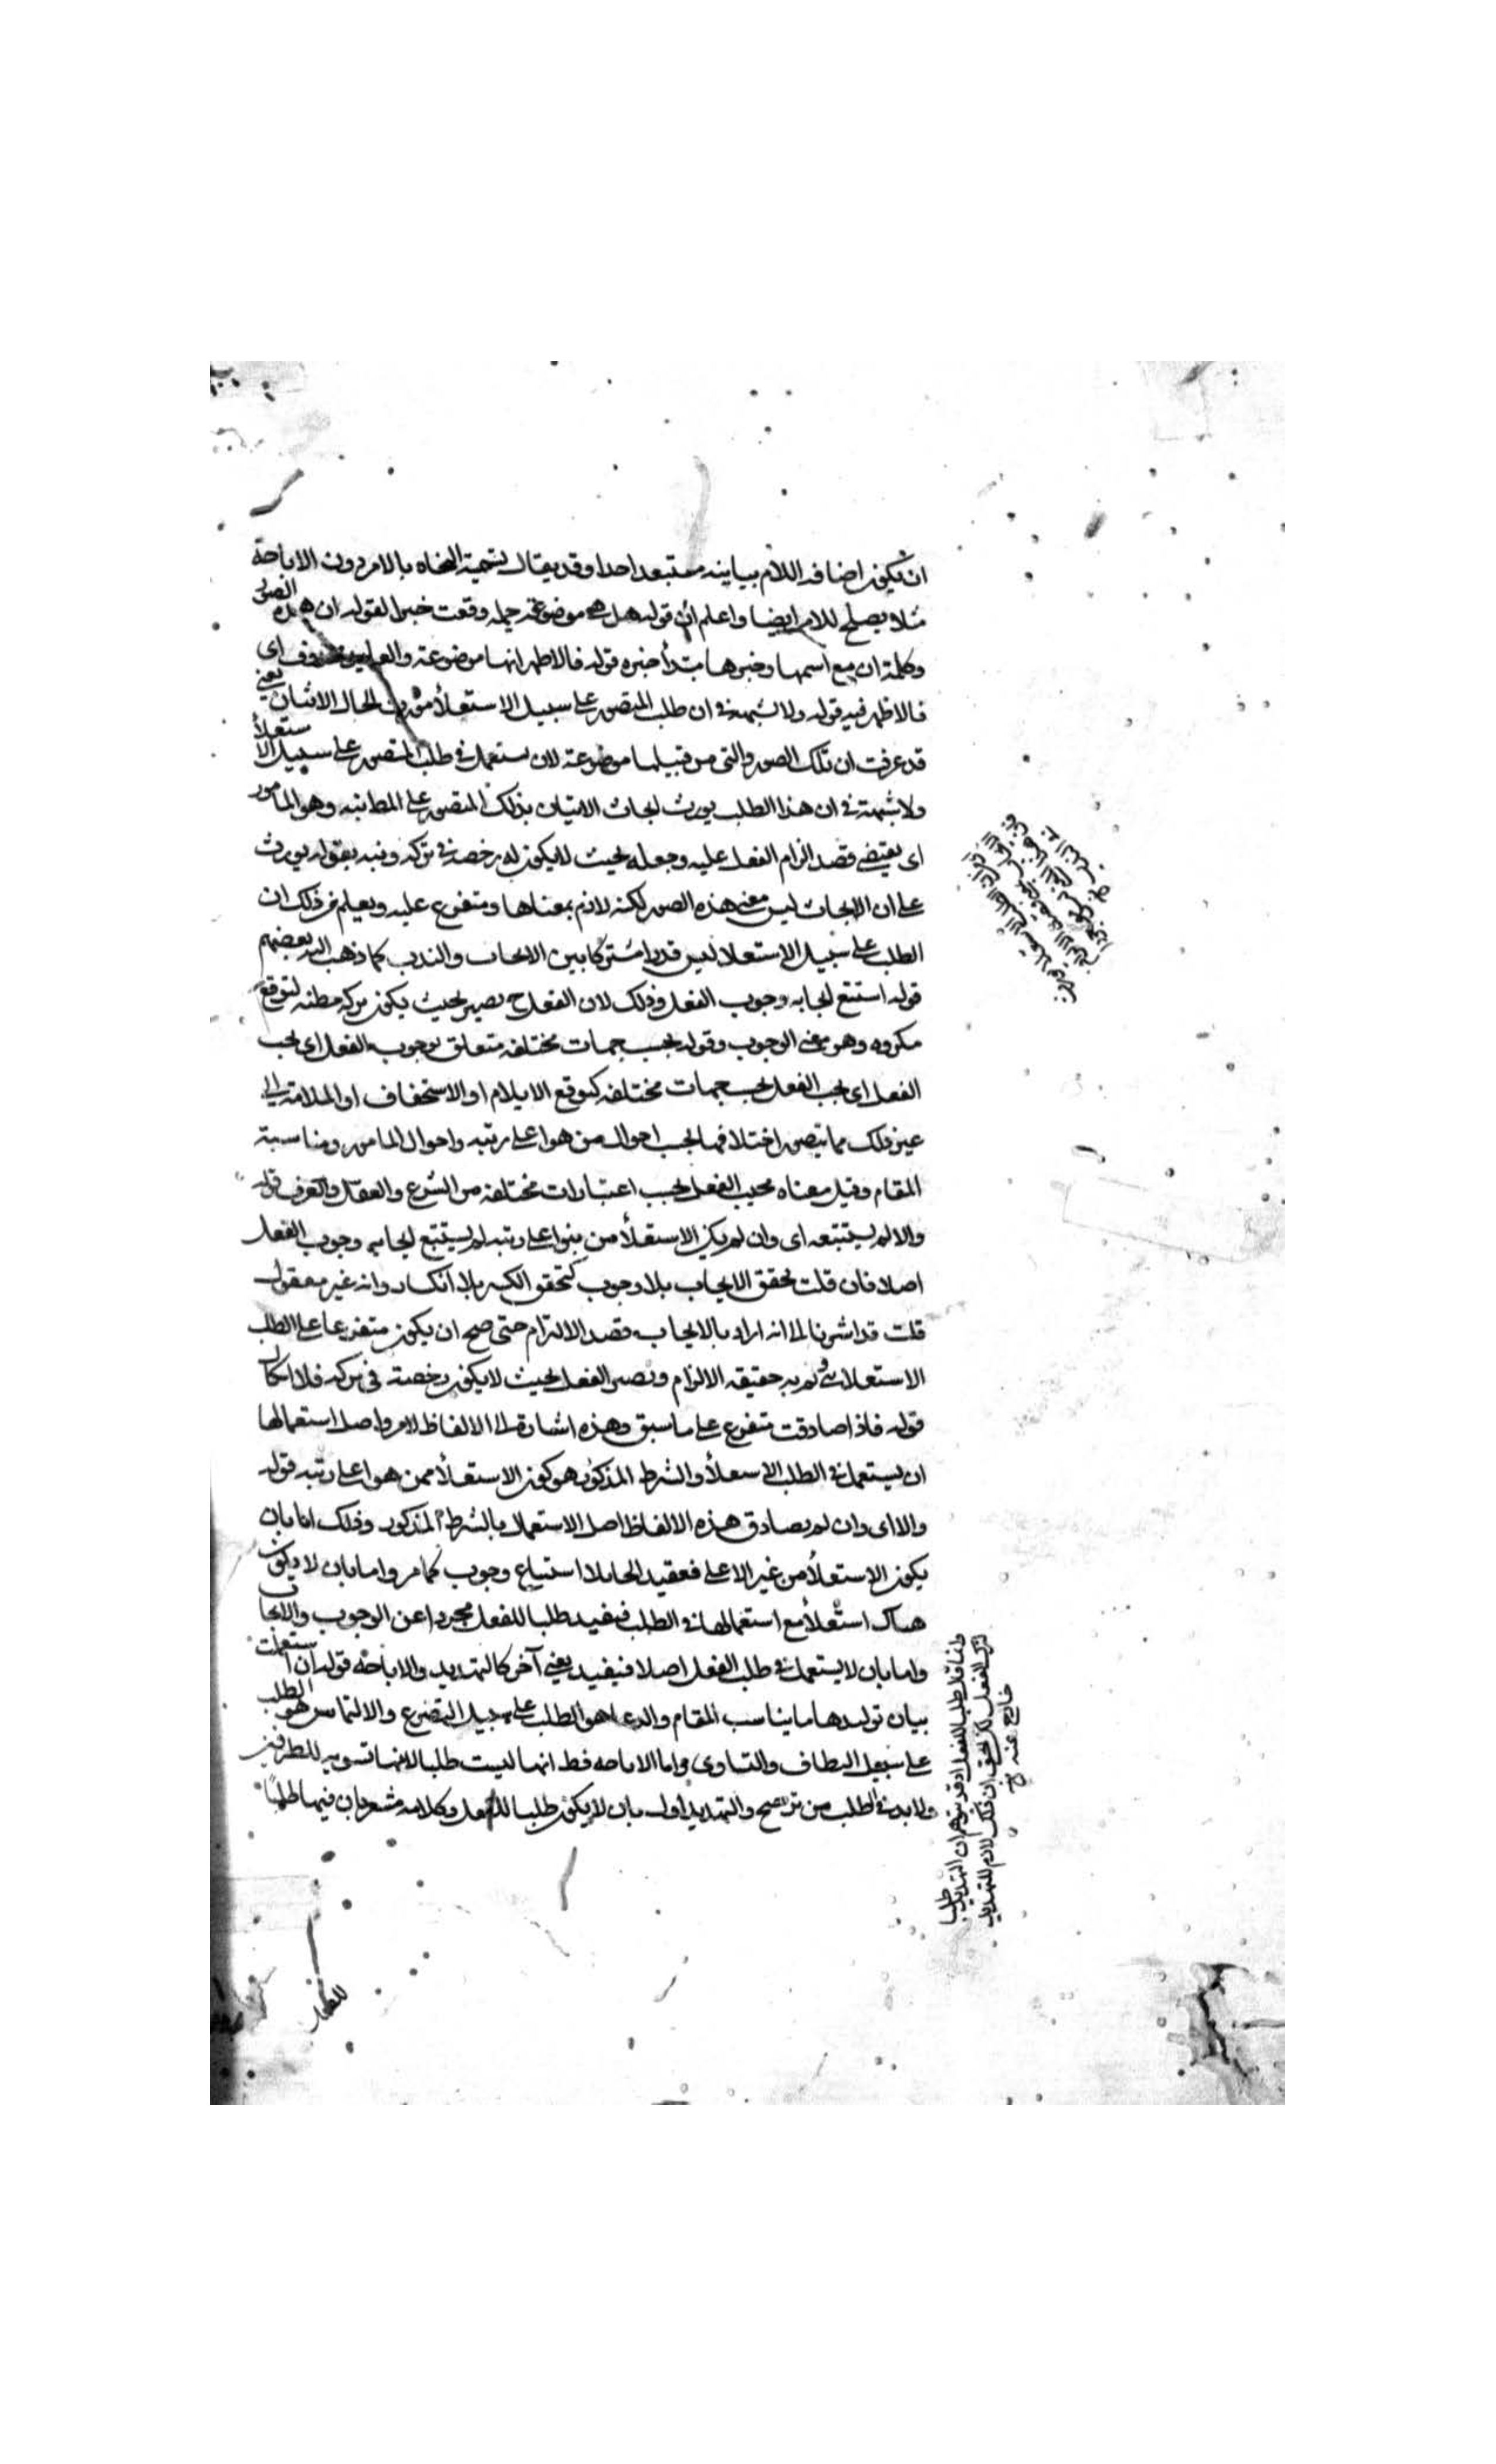 ان يكون اضافه اللام بيانيه مستبعد احدا وقد يقال تسمية النحاه بالامر دون الاباحة
مثلا يصلح للامر ايضا واعلم ان قوله هل هي موضوعة جمله وقعت خبرا لقوله ان هذه الصور
وكلمة ان مع اسمها وخبرها مبتدأ خبره قوله فالاظهر انها موضوعة والعايد محذوف اى
فالاظهر فيه قوله ولا شبهة فى ان طلب المتصور على سبيل الاستعلأ مورث لايجاب الاتيان يعنى
قد عرفت ان تلك الصور والتى من قبيلها موضوعة لان تستعمل فى طلب المتصور على سبيل الاستعلأ
ولا شبهة فى ان هذا الطلب يورث ايجاب الاتيان بذلك المتصور على المط منه وهو المامور
اى يقتضى قصد الزام الفعل عليه وجعله بحيث لا يكون له رخصة فى تركه ونبه بقوله يورث
على ان الايجاب ليس معنى هذه الصور لكنه لازم بمعناها ومتفرع عليه ويعلم من ذلك ان
الطلب على سبيل الاستعلا ليس قدرا مشتركا بين الايجاب والندب كما ذهب اليه بعضهم
قوله استتبع ايجابه وجوب الفعل وذلك لان الفعل ح يصير بحيث يكون تركه مظنه لتوقع
مكروه وهو معنى الوجوب وقوله بحسب جهات مختلفه متعلق بوجوب الفعل اى يجب
الفعل اى يجب الفعل بحسب جهات مختلفه كتوقع الايلام او الاستخفاف او الملامة الى
غير ذلك مما يتصور اختلافها بحسب احوال من هو اعلى رتبه واحوال المامور ومناسبة
المقام وقيل معناه يجب الفعل بحسب اعتبارات مختلفه من الشرع والعقل والعرف قوله
والا لم يستتبعه اى وان لم يكن الاستعلأ من هو اعلى رتبه لم يستتبع ايجابه وجوب الفعل
اصلا فان قلت تحقق الايجاب بلا وجوب كتحقق الكسر بلا انكسار وانه غير معقول
قلت قد اشرنا الى انه اراد بالايجاب قصد الالزام حتى صح ان يكون متفرعا على الطلب
الاستعلائى ولم يرد به حقيقه الالزام وتصيير الفعل بحيث لا يكون رخصة فى تركه فلا اشكال
قوله فاذا صادفت متفرع على ما سبق وهذه اشارة الى الالفاظ الامر واصل استعمالها
ان يستعمل فى الطلب الاستعلأ والشرط المذكور هو كون الاستعلأ ممن هو اعلى رتبه قوله
والا اى وان لم يصادق هذه الالفاظ اصل الاستعمال بالشرط المذكور وذلك اما بان
يكون الاستعلأ من غير الاعلى فيفيد ايجابا بلا استتباع وجوب كما مر واما بان لا يكون
هناك استعلأ مع استعمالها فى الطلب فيفيد طلبا للفعل مجردا عن الوجوب والايجاب
واما بان لا يستعمل فى طلب الفعل اصلا فيفيد معنى آخر كالتهديد والاباحة قوله ان استعملت
بيان توليدها ما يناسب المقام والدعا هو الطلب على سبيل التضرع والالتماس هو الطلب
على سبيل التلطف والتساوى واما الاباحه فظ انها ليست طلبا لانها تسويه للطرفين
ولا بد فى الطلب من ترجيح والتهديد اولى بان لا يكون طلبا للفعل وكلامه مشعر بان فيها طلبا
وانما قال طلبا للفعل اذ قد يتوهم ان التهديد طلبا
لترك الفعل لكن الحق ان ذلك لازم للتهديد
خارج عنه